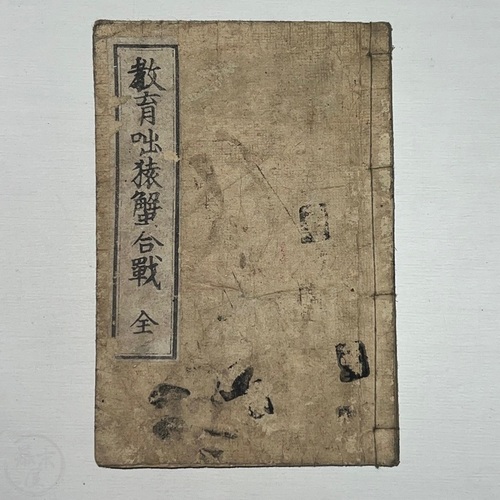 教育咄猿蟹合戰 全